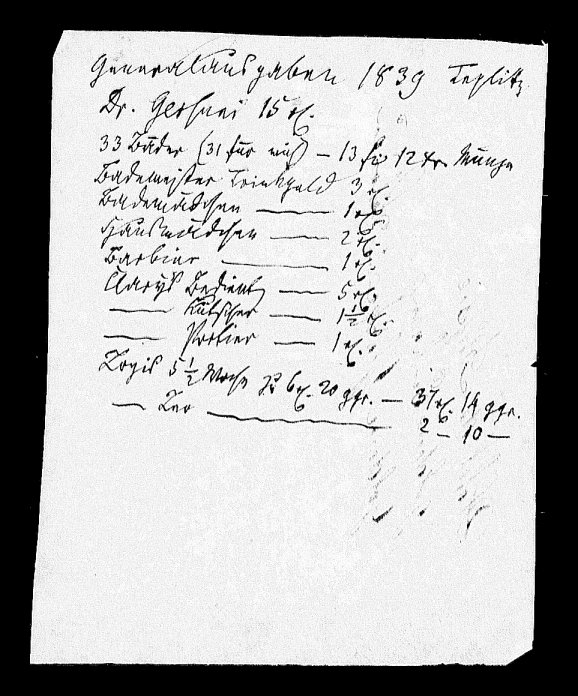 Generalausgaben 1839 Teplitz
Dr. Gerhuni 15 rℓ.
33 Bäder (31 für mich) – 13 fℓ 12 xr. Münze
Bademeister Trinkgeld 3 rℓ.
Bademädchen — 1 rℓ.
Hausmädchen — 2 rℓ.
Barbier — 1 rℓ.
Clarys Bedient — 5 rℓ.
— Kutscher — 1½ rℓ.
— Portier — 1 rℓ.
Logis 5½ Woche zu 6 rℓ. 20 ggr. — 37 rℓ. 14 ggr.
— — 2 – 10 –